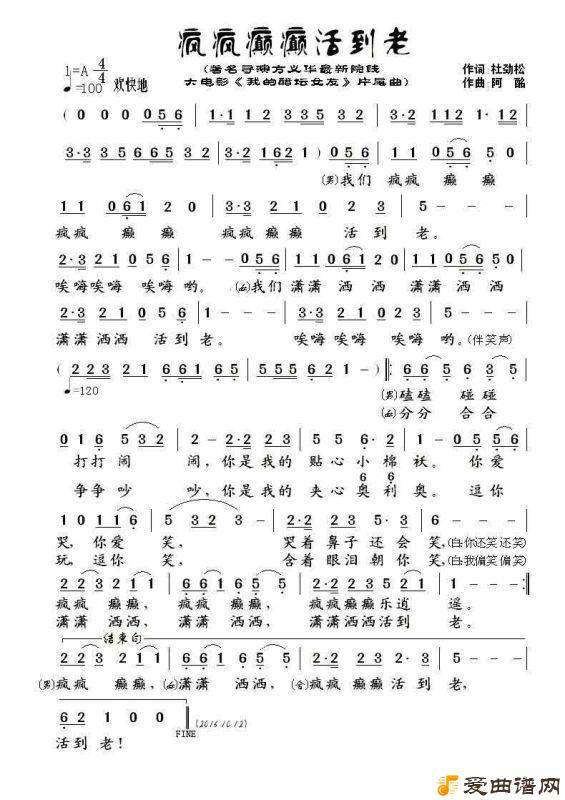 疯疯癫癫活到老
(著名导演方义华最新院线
大电影《我的醋坛女友》片尾曲)
作词 杜劲松
作曲 阿 酩
1=A 4/4
♩=100 欢快地
( 0 0 0 0 5 6 | 1·3 2 1 2 3 5 | 2·2 2 1 6 1 2 0 |
3·3 3 5 6 6 5 3 | 3·2 3 1 6 2 1 0 ) 0 5 6 | 1 1 0 5 6 5 0 |
(男)我们 疯疯 癫 癫
1 1 0 6 1 2 0 | 3·3 2 1 2 3 | 5 - - |
疯疯 癫 癫 疯疯癫癫 活 到 老。
2·3 2 1 5 6 2 | 1 - - 0 5 6 | 1 1 0 6 1 2 0 | 1 1 0 5 6 5 0 |
唉嗨唉嗨 唉嗨 哟。 (女)我们 潇潇 洒 洒 潇潇 洒 洒
3·3 2 1 2 3 | 5 - - | 2·3 2 1 5 6 2 | 1 - - 0 |
潇潇洒洒 活到 老。 唉嗨唉嗨 唉嗨 哟。(伴笑声)
( 2 2 3 2 1 | 6 6 1 6 5 | 5 5 5 6 2 1 - ) ‖: 6 6 5 6 3 5 |
♩=120
(男)磕磕 碰碰
(女)分分 合合
0 1 6 5 3 2 | 2 - - 0 2 3 | 2·2 2 3 | 5 5 6· 2 | 1 - 0 5 5 6 |
打打 闹 闹,你是 我的 贴心 小棉 袄。 你爱
6 6
争争 吵 吵,你是 我的 夹心 奥利 奥。 逗你
1 0 0 1 1 6 | 5 3 2 3 | 2·2 2 3 5 5 3 2 | 6 - - |
哭,你爱 笑, 哭着 鼻子 还 会 笑,(白:你还笑还笑)
玩,逗你 笑, 含着 眼泪 朝 你 笑,(白:我偏笑偏笑)
2 2 3 2 1 | 6 1 6 6 5 5 | 2·2 2 3 5 2 1 | 1 - :‖
疯疯 癫癫, 疯疯 癫癫, 疯疯癫癫乐逍 遥。
潇潇 洒洒, 潇潇 洒洒, 潇潇洒洒活到 老。
结束句
2 2 3 2 1 | 6 1 6 6 5 5 | 3·2 2 3 2 3 | 2 - - |
(男)疯疯 癫癫,(女)潇潇 洒洒,(合)疯疯 癫癫活 到 老,
6 2 1 0 0 ‖ (2016.10.12)
FINE
活到 老!
爱曲谱网